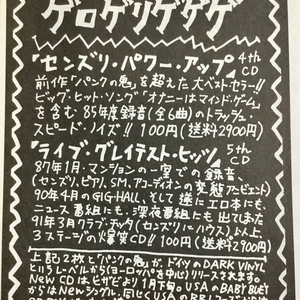 ゲロゲリゲゲゲ
「センズリ・パワー・アップ」4th CD
前作「パンクの鬼」を超えた大ベストセラー!!
ビッグ・ヒット・ソング「オナニーはマインド・ゲーム」
を含む85年度録音(全6曲)のトラッシュ・
スピード・ノイズ!! 100円(送料2900円)
「ライブ・グレイテスト・ヒッツ」5th CD
87年1月・マンションの一室での録音
(センズリ、ピアノ、SM、アコーディオンの変態アンビエント)
90年4月のGIG-HALL、そして遂にエロ本にも、
ニュース番組にも、深夜番組にも出てしまった
91年3月クラブ・チッタ(センズリ・ハウス)、以上、
3ステージの爆笑CD!! 100円(送料2900円)
上記2枚と「パンクの鬼」が、ドイツのDARK VINYL
というレーベルから(ヨーロッパを中心)リリースされます。
NEW CDは、ヒサビサ1月下旬、USAのBABY BLUEY
からはNEWシングル、同じくUSAの